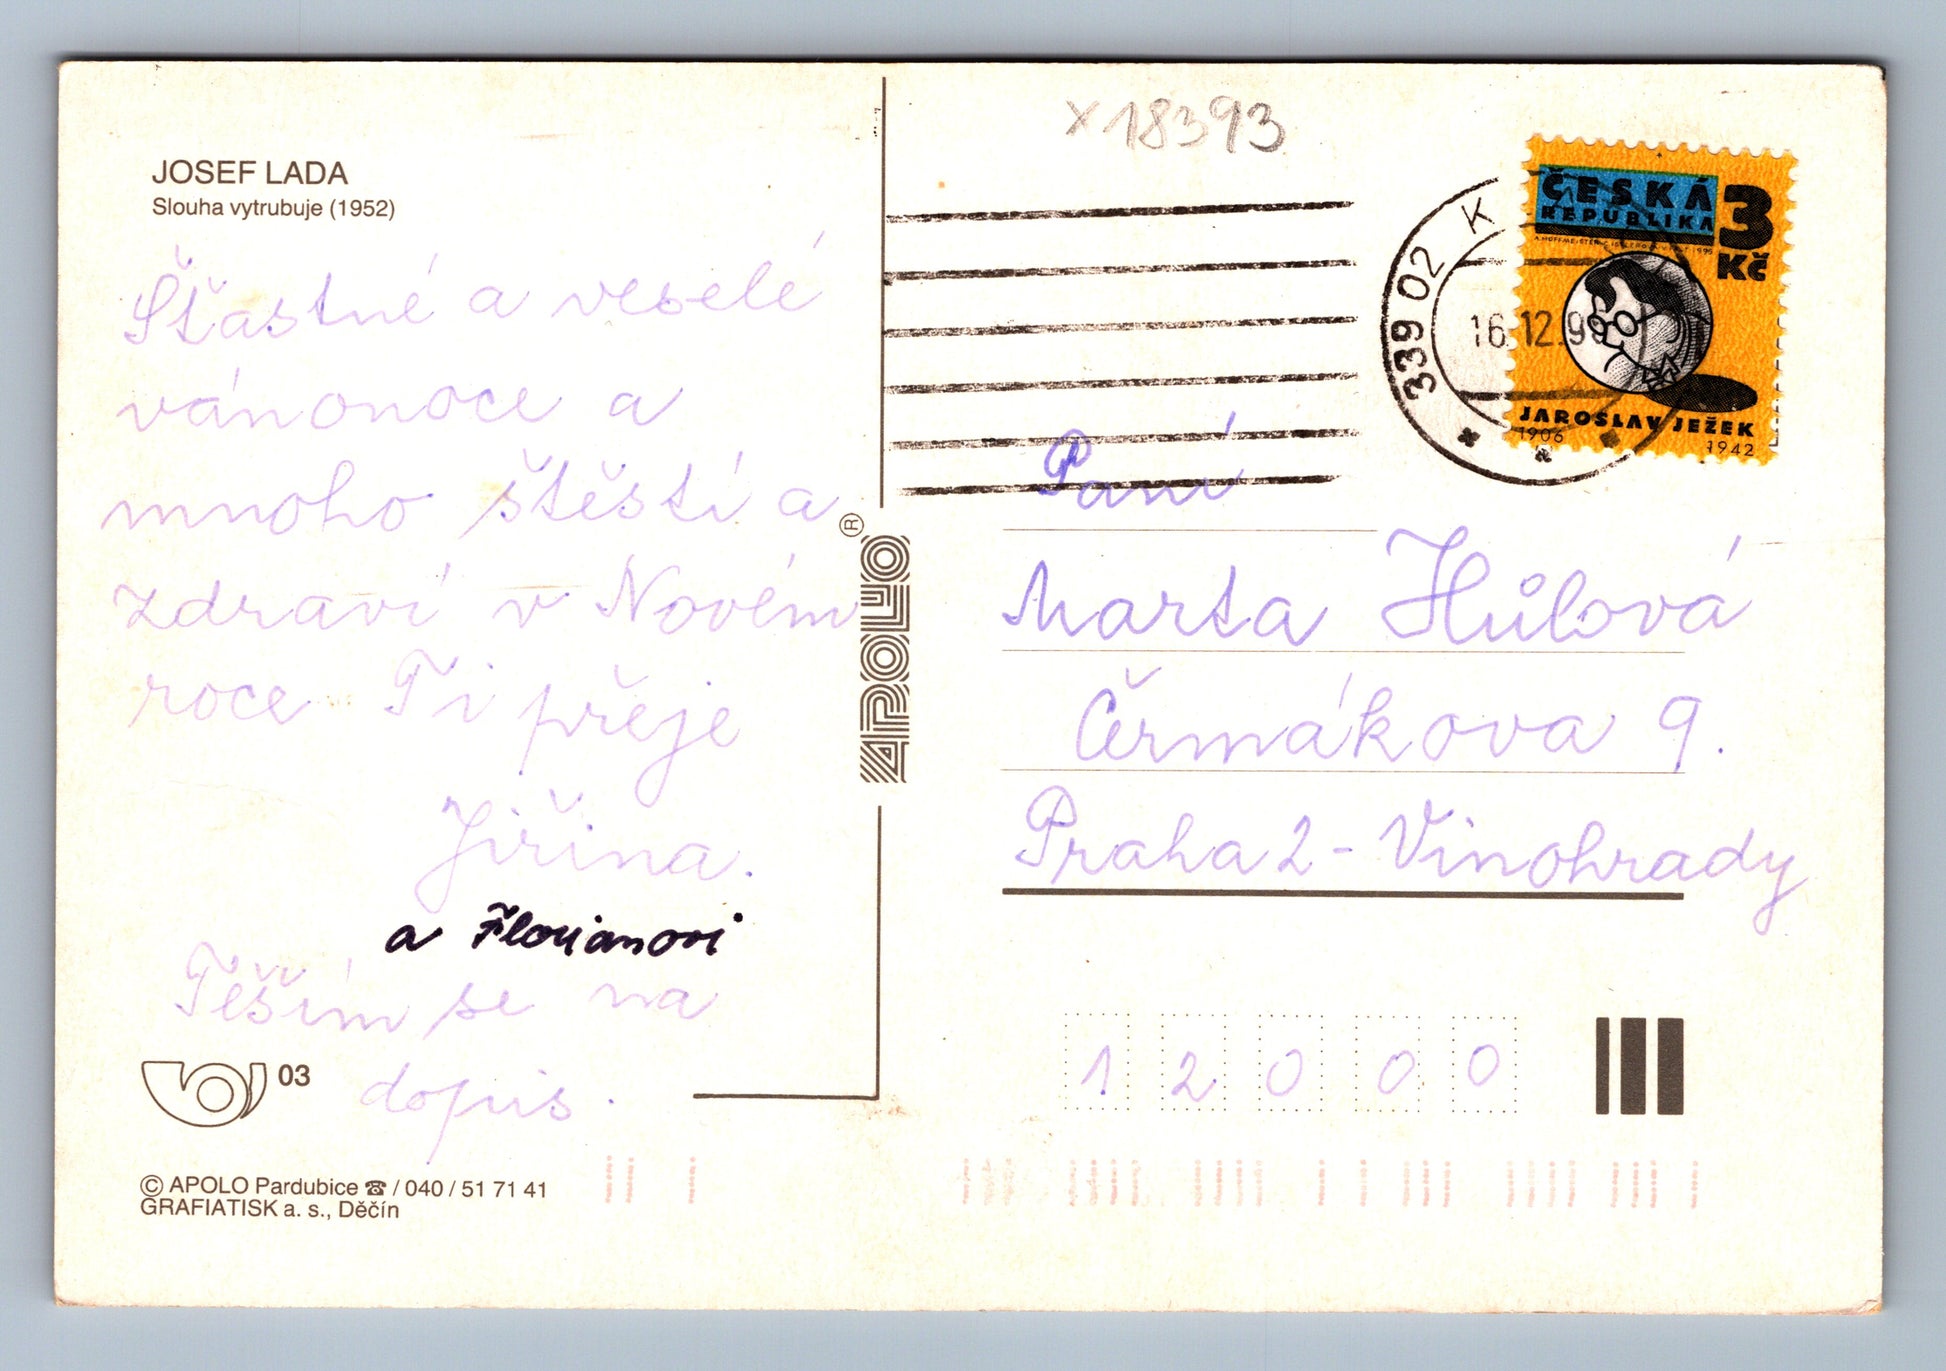 JOSEF LADA
Slouha vytrubuje (1952)
Šťastné a veselé
vánonoce a
mnoho štěstí a
zdraví v Novém
roce Ti přeje
Jiřina.
a Florianovi
Těším se na
dopis.
03
© APOLO Pardubice ☎ / 040 / 51 71 41
GRAFIATISK a. s., Děčín
APOLO ®
x 18393
339 02 K
16.12.9
ČESKÁ
REPUBLIKA
3
Kč
JAROSLAV JEŽEK
1906
1942
Paní
Marta Hůlová
Čermákova 9.
Praha 2 - Vinohrady
12000